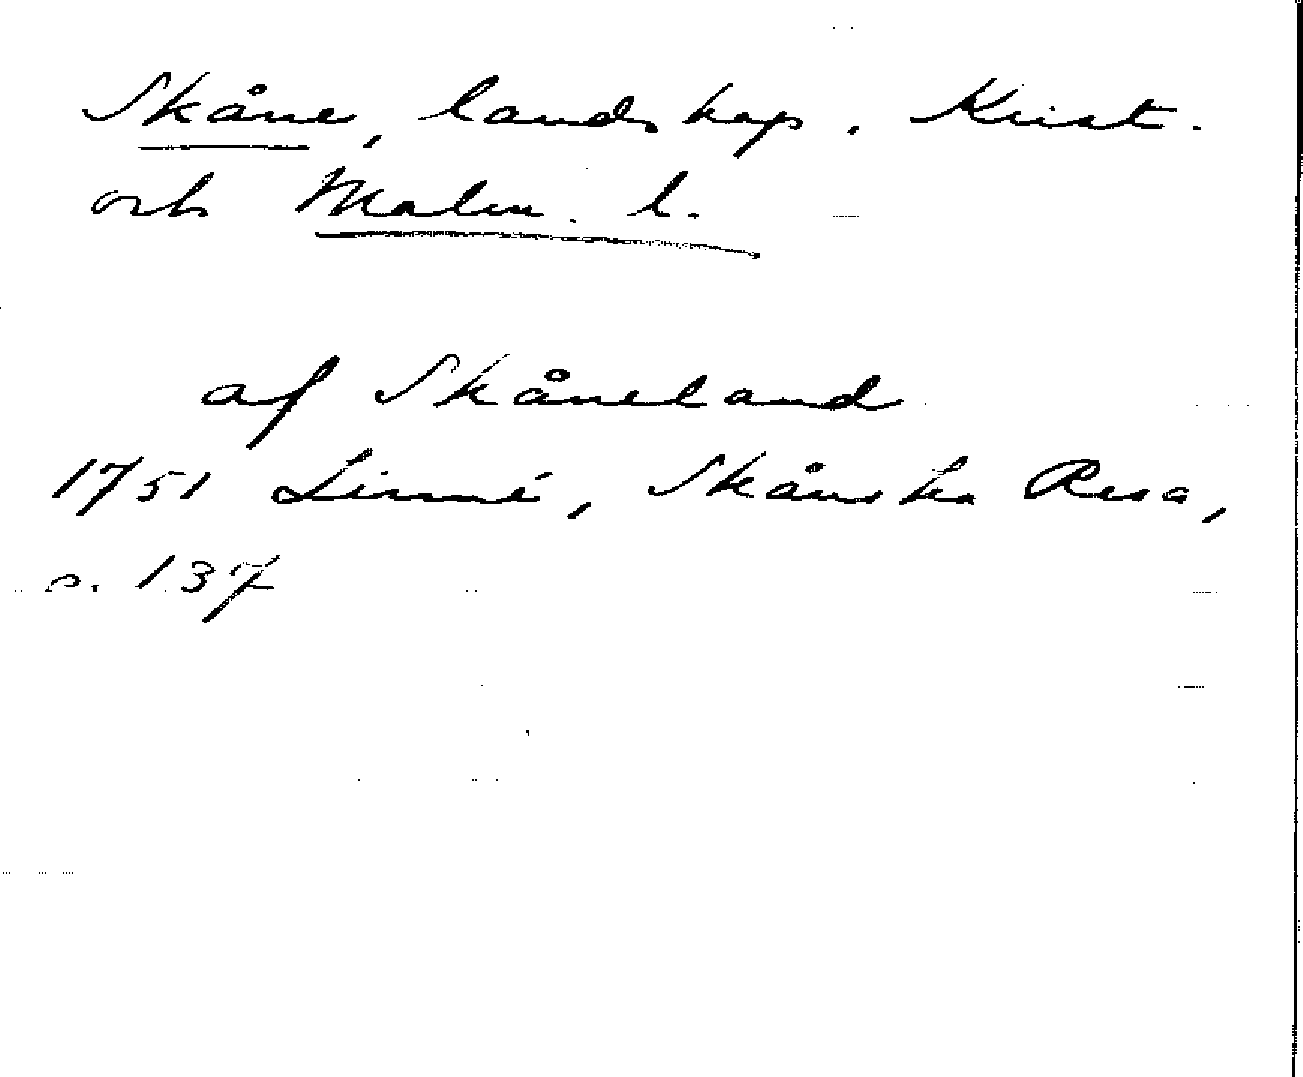 Skåne, landskap. Krist.
och Malm. l.
af Skåneland
1751 Linné, Skånska Resa,
s. 137